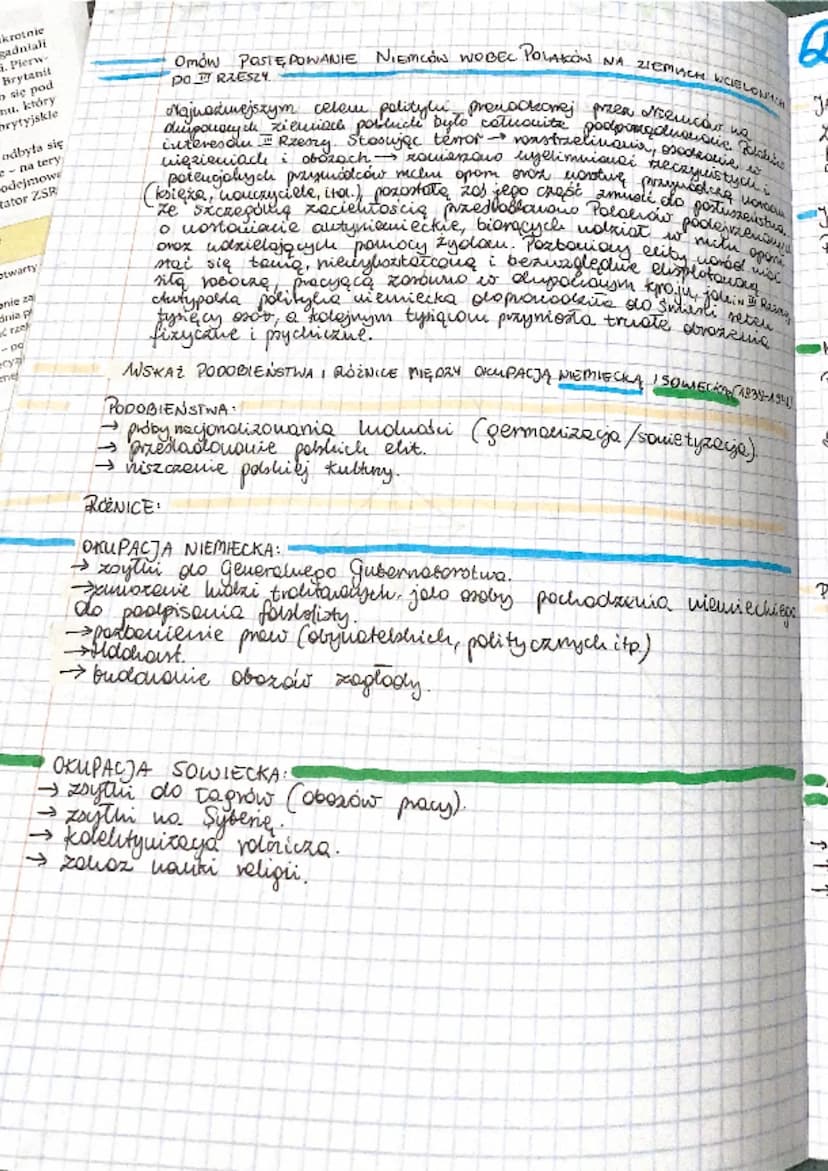 krotnie
gadniali
i. Pierw-
Brytanii
o się pod
nu, który
brytyjskie
odbyła się
e – na tery
odejmowa
tator ZSR
otwarty
OMÓW POSTĘPOWANIE NIEMCÓW WOBEC POLAKÓW NA ZIEMIACH WCIELONYCH
DO III RZESZY.
Najważniejszym celem polityki prowadzonej przez Niemców na
okupowanych ziemiach polskich było całkowite podporządkowanie Polaków
interesom III Rzeszy. Stosując terror → rozstrzeliwania, osadzanie w
więzieniach i obozach → zamierzano wyeliminować rzeczywistych i
potencjalnych przywódców ruchu oporu oraz warstwę przywódczą narodu
(księża, nauczyciele, itd.), pozostałą zaś jego część zmusić do posłuszeństwa.
Ze szczególną zaciekłością prześladowano Polaków podejrzewanych
o nastawianie antyniemieckie, biorących udział w ruchu oporu
oraz udzielających pomocy Żydom. Pozbawiony elity naród miał
stać się tanią, niewykształconą i bezwzględnie eksploatowaną
siłą roboczą, pracującą zarówno w okupowanym kraju, jak i w III Rzeszy.
Antypolska polityka niemiecka doprowadziła do śmierci setek
tysięcy osób, a kolejnym tysiącom przyniosła trwałe obrażenia
fizyczne i psychiczne.
WSKAŻ PODOBIEŃSTWA I RÓŻNICE MIĘDZY OKUPACJĄ NIEMIECKĄ I SOWIECKĄ (1939-1941)
PODOBIEŃSTWA:
→ próby nacjonalizowania ludności (germanizacja/sowietyzacja).
→ prześladowanie polskich elit.
→ niszczenie polskiej kultury.
RÓŻNICE:
OKUPACJA NIEMIECKA:
→ zsyłki do Generalnego Gubernatorstwa.
→ zmuszenie ludzi traktowanych, jako osoby pochodzenia niemieckiego
do podpisania folkslisty.
→ pozbawienie praw (obywatelskich, politycznych itp.)
→ Holokaust.
→ budowanie obozów zagłady.
OKUPACJA SOWIECKA:
→ zsyłki do łagrów (obozów pracy).
→ zsyłki na Syberię.
→ kolektywizacja rolnicza.
→ zakaz nauki religii.